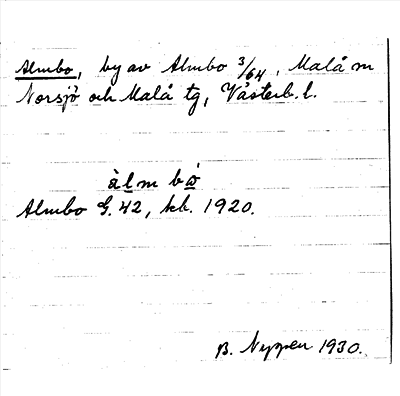 Almbo, by av Almbo 3/64, Malå sn
Norsjö och Malå tg, Västerb. l.
àlm bò
Almbo G. 42, kk. 1920.
B. Nyppen 1930.